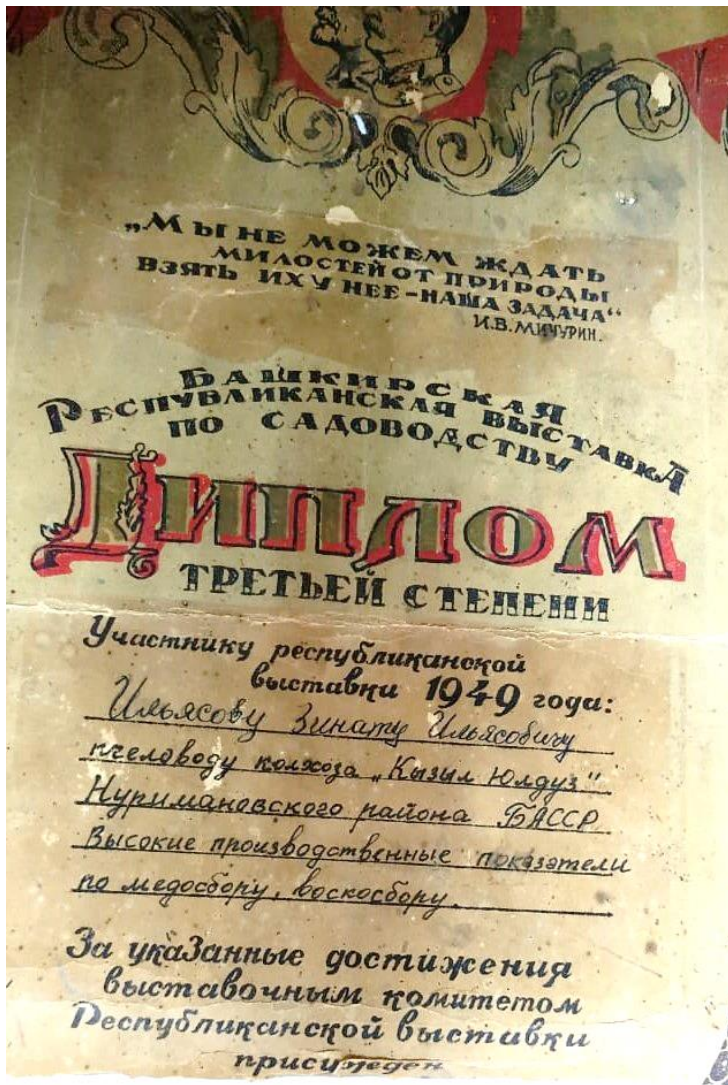 „Мы не можем ждать
милостей от природы
взять их у нее – наша задача“
И.В. Мичурин.
Башкирская
Республиканская выставка
по садоводству
Диплом
третьей степени
Участнику республиканской
выставки 1949 года:
Ильясову Зинату Ильясовичу
пчеловоду колхоза „Кызыл Юлдуз"
Нуримановского района БАССР
Высокие производственные показатели
по медосбору, воскосбору.
За указанные достижения
выставочным комитетом
Республиканской выставки
присужден